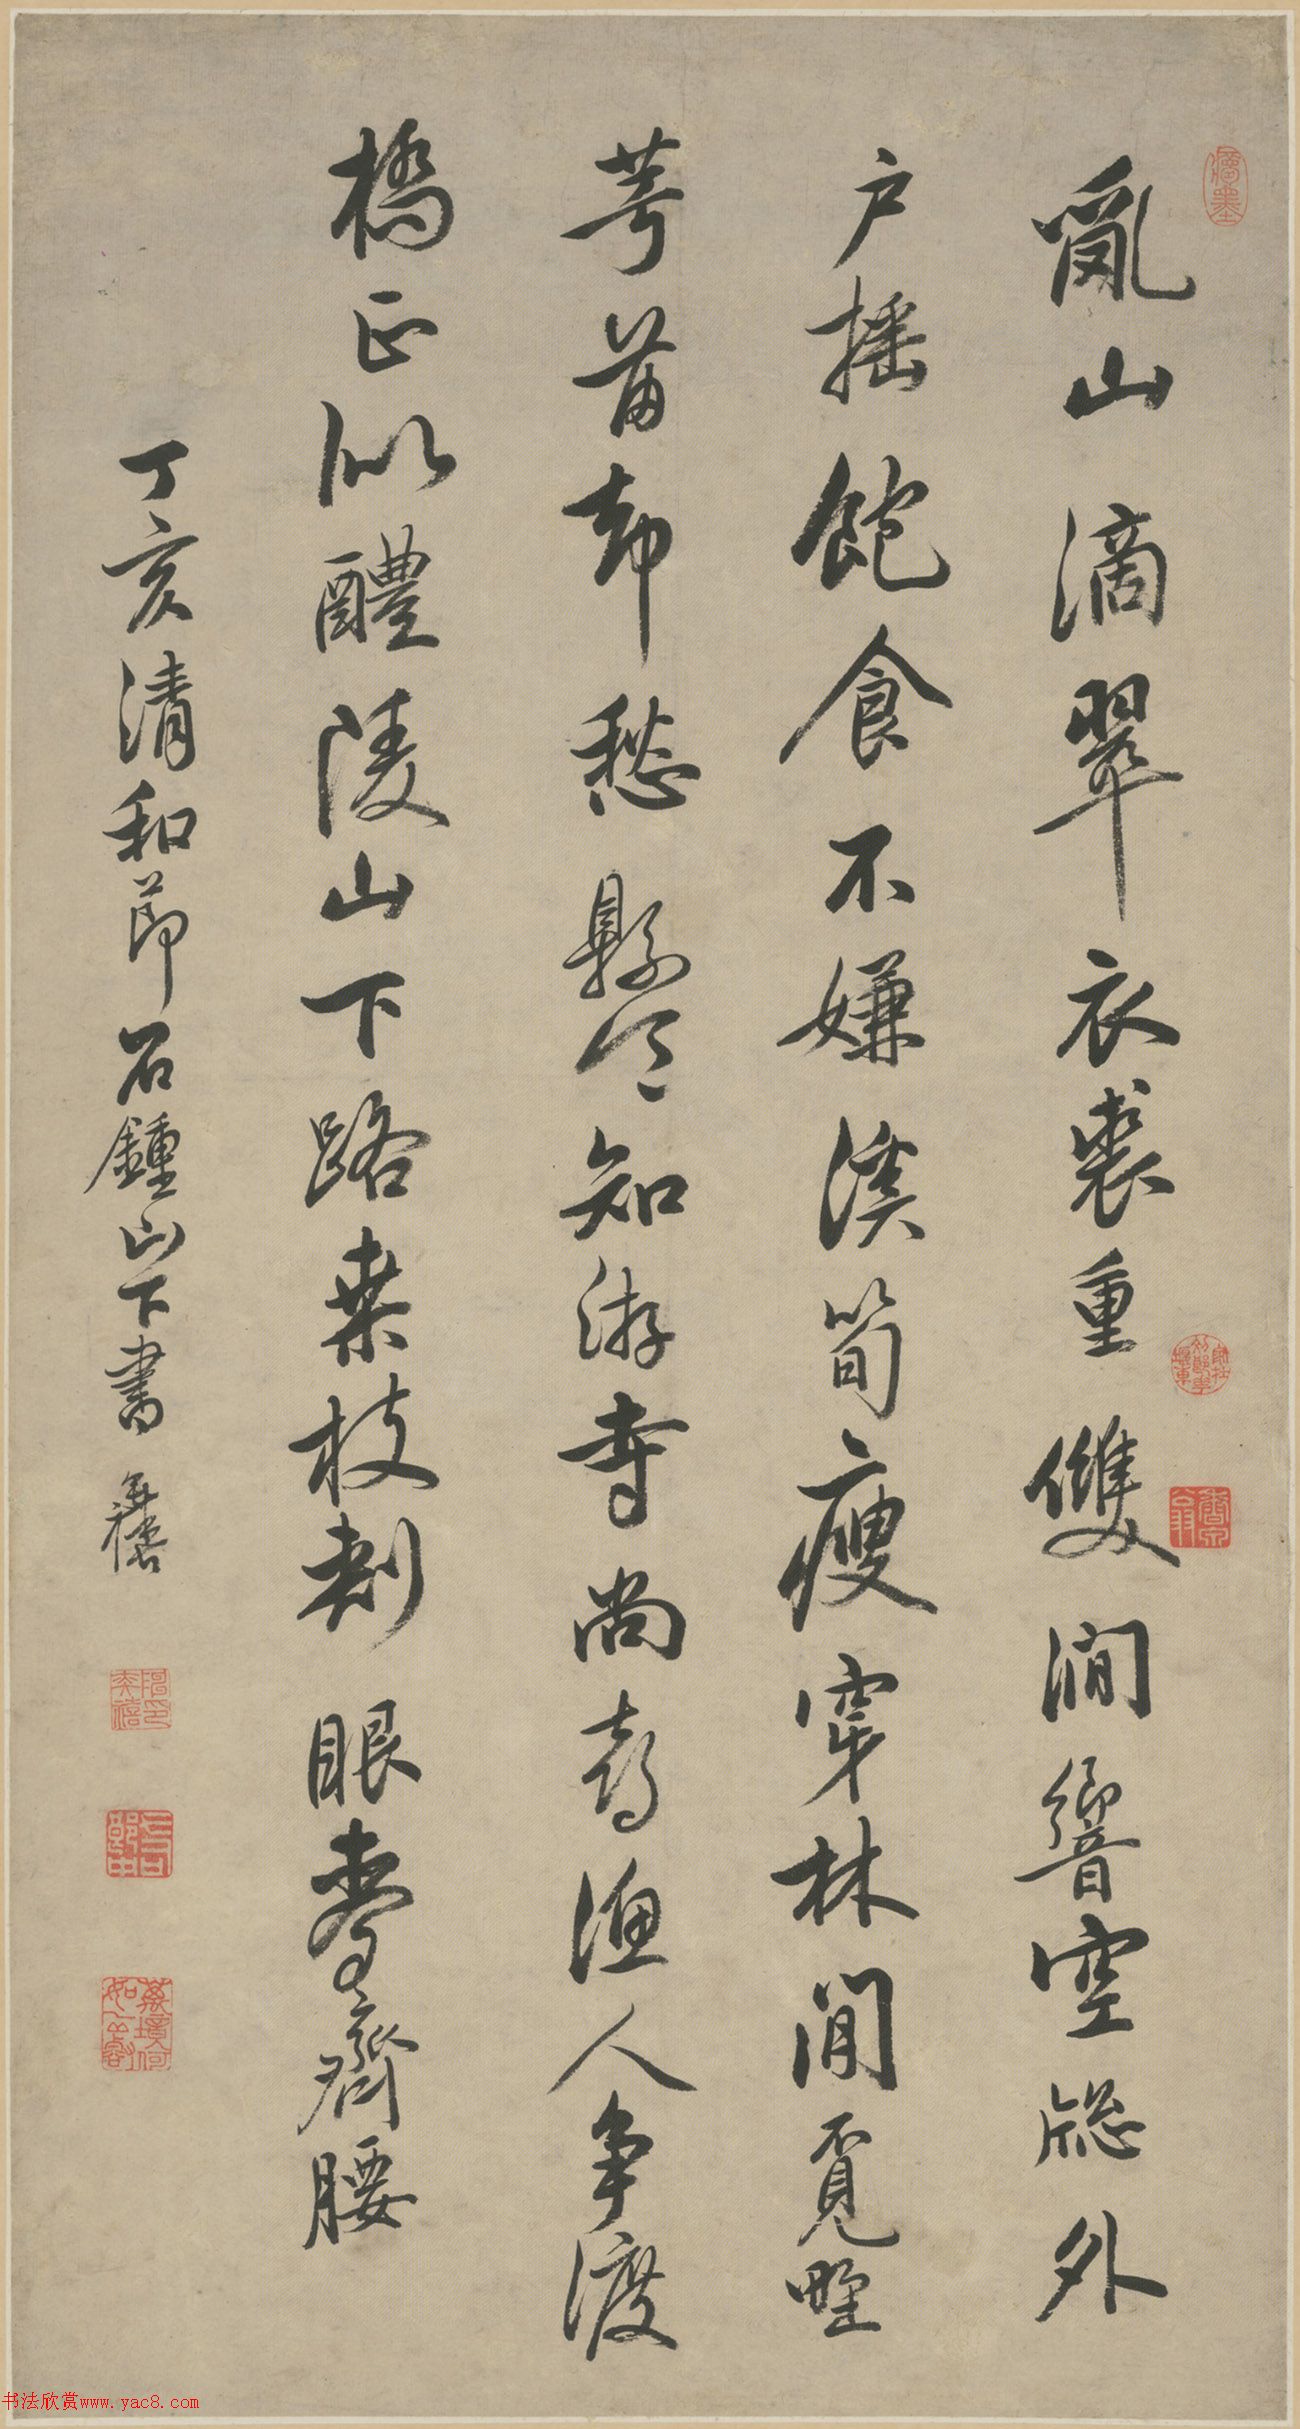 亂山滴翠衣裘重雙澗響空窓外
户摇飽食不嫌溪筍瘦穿林閒覓野
芎苗却愁縣令知游寺尚喜漁人争渡
橋正似醴陵山下路桒枝刺眼麥齊腰
丁亥清和節石鍾山下書 奕禧
書法欣赏www.yac8.com